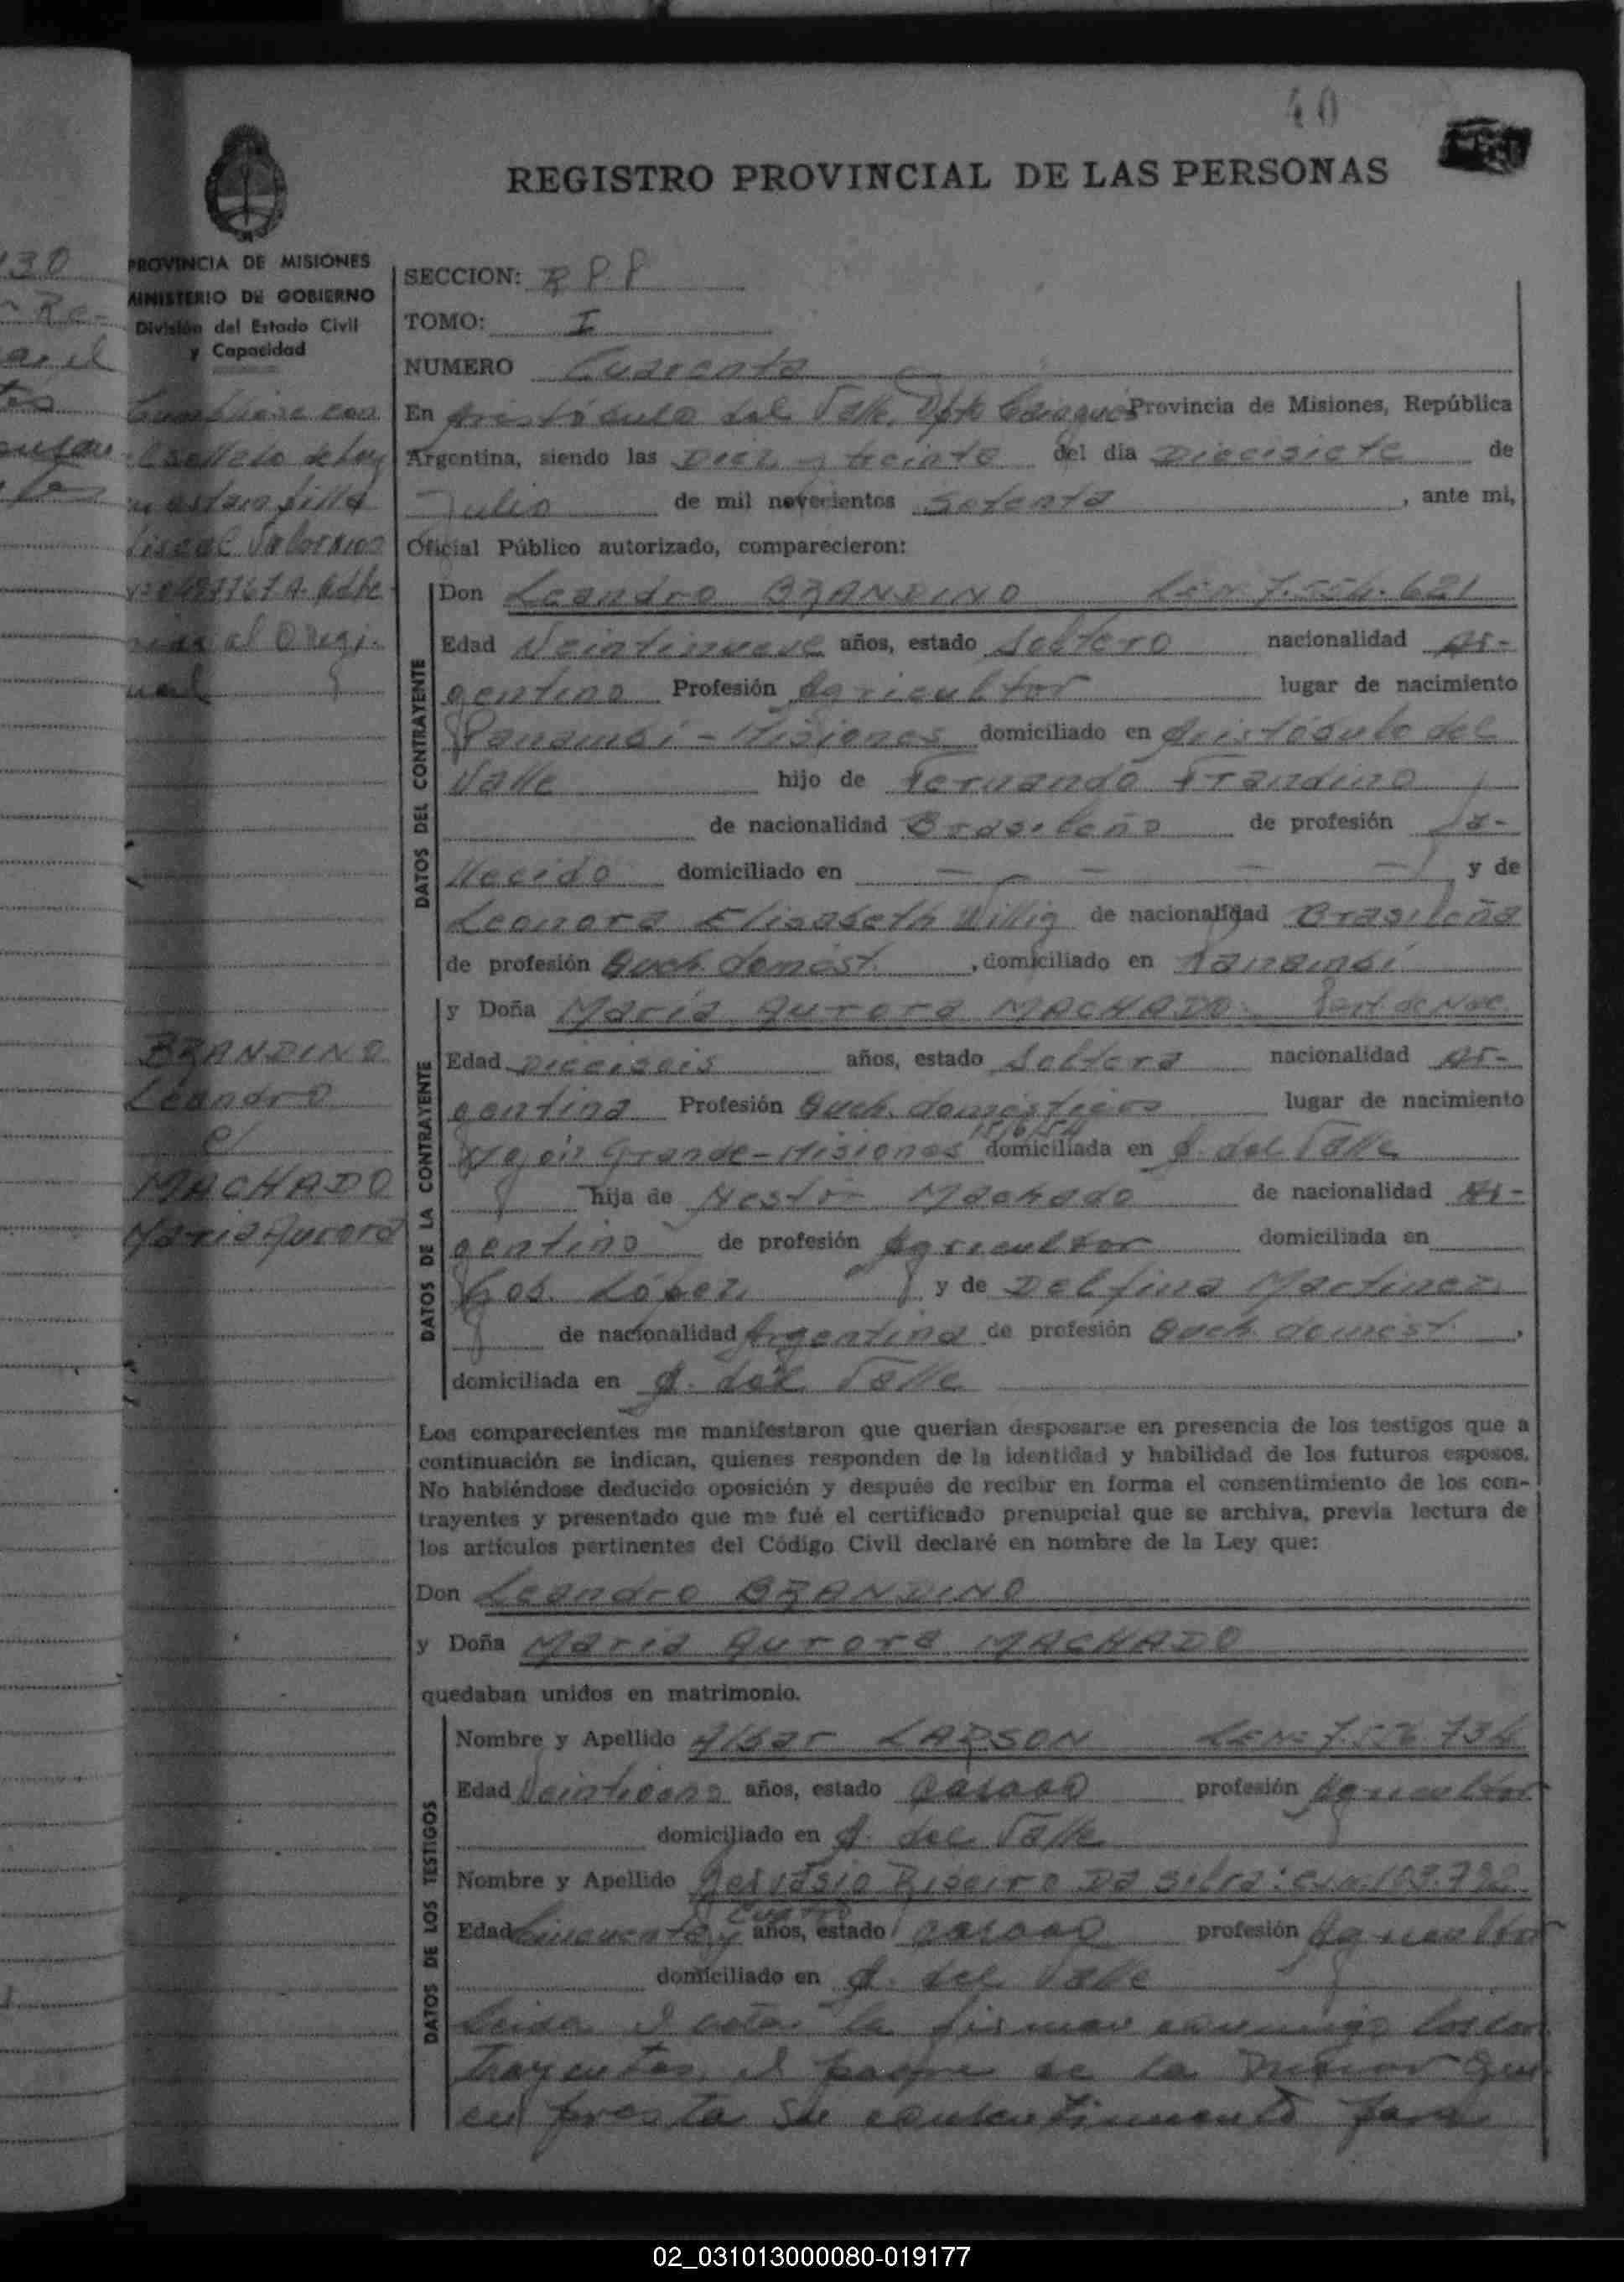 40
REGISTRO PROVINCIAL DE LAS PERSONAS
PROVINCIA DE MISIONES
MINISTERIO DE GOBIERNO
División del Estado Civil
y Capacidad
SECCION: R P P
TOMO: I
NUMERO Cuarenta
En Aristóbulo del Valle, Dpto Cainguás Provincia de Misiones, República
Argentina, siendo las Diez y treinta del día Diecisiete de
Julio de mil novecientos Setenta, ante mi,
Oficial Público autorizado, comparecieron:
DATOS DEL CONTRAYENTE
Don Leandro BRANDINO L.E.Nº 7.554.621
Edad Veintinueve años, estado Soltero nacionalidad Ar-
gentino Profesión Agricultor lugar de nacimiento
Panambí - Misiones domiciliado en Aristóbulo del
Valle hijo de Fernando Frandino
de nacionalidad Brasileño de profesión Fa-
llecido domiciliado en — — — — y de
Leonora Elisabeth Willig de nacionalidad Brasileña
de profesión Queh. domést. , domiciliado en Panambí
DATOS DE LA CONTRAYENTE
y Doña María Aurora MACHADO Part. de Nac.
Edad Dieciseis años, estado Soltera nacionalidad Ar-
gentina Profesión Queh. domésticos lugar de nacimiento
Mojón Grande - Misiones domiciliada en A. del Valle
hija de Nestor Machado de nacionalidad Ar-
gentino de profesión Agricultor domiciliada en
Gob. López y de Delfina Martinez
de nacionalidad Argentina de profesión Queh. domést. ,
domiciliada en A. del Valle
Los comparecientes me manifestaron que querían desposarse en presencia de los testigos que a
continuación se indican, quienes responden de la identidad y habilidad de los futuros esposos.
No habiéndose deducido oposición y después de recibir en forma el consentimiento de los con-
trayentes y presentado que me fué el certificado prenupcial que se archiva, previa lectura de
los artículos pertinentes del Código Civil declaré en nombre de la Ley que:
Don Leandro BRANDINO
y Doña María Aurora MACHADO
quedaban unidos en matrimonio.
DATOS DE LOS TESTIGOS
Nombre y Apellido Albar LARSON L.E.Nº 7.556.734
Edad años, estado casado profesión Agricultor
domiciliado en A. del Valle
Nombre y Apellido Gervasio Ribeiro Da Silva: 103.792
Edad Cincuenta y cuatro años, estado casado profesión Agricultor
domiciliado en A. del Valle
Leida el acta la firman conmigo los con
trayentes, el padre de la menor quien
presta su consentimiento para
al Origi-
nal
BRANDINO
Leandro
c/
MACHADO
María Aurora
02_031013000080-019177